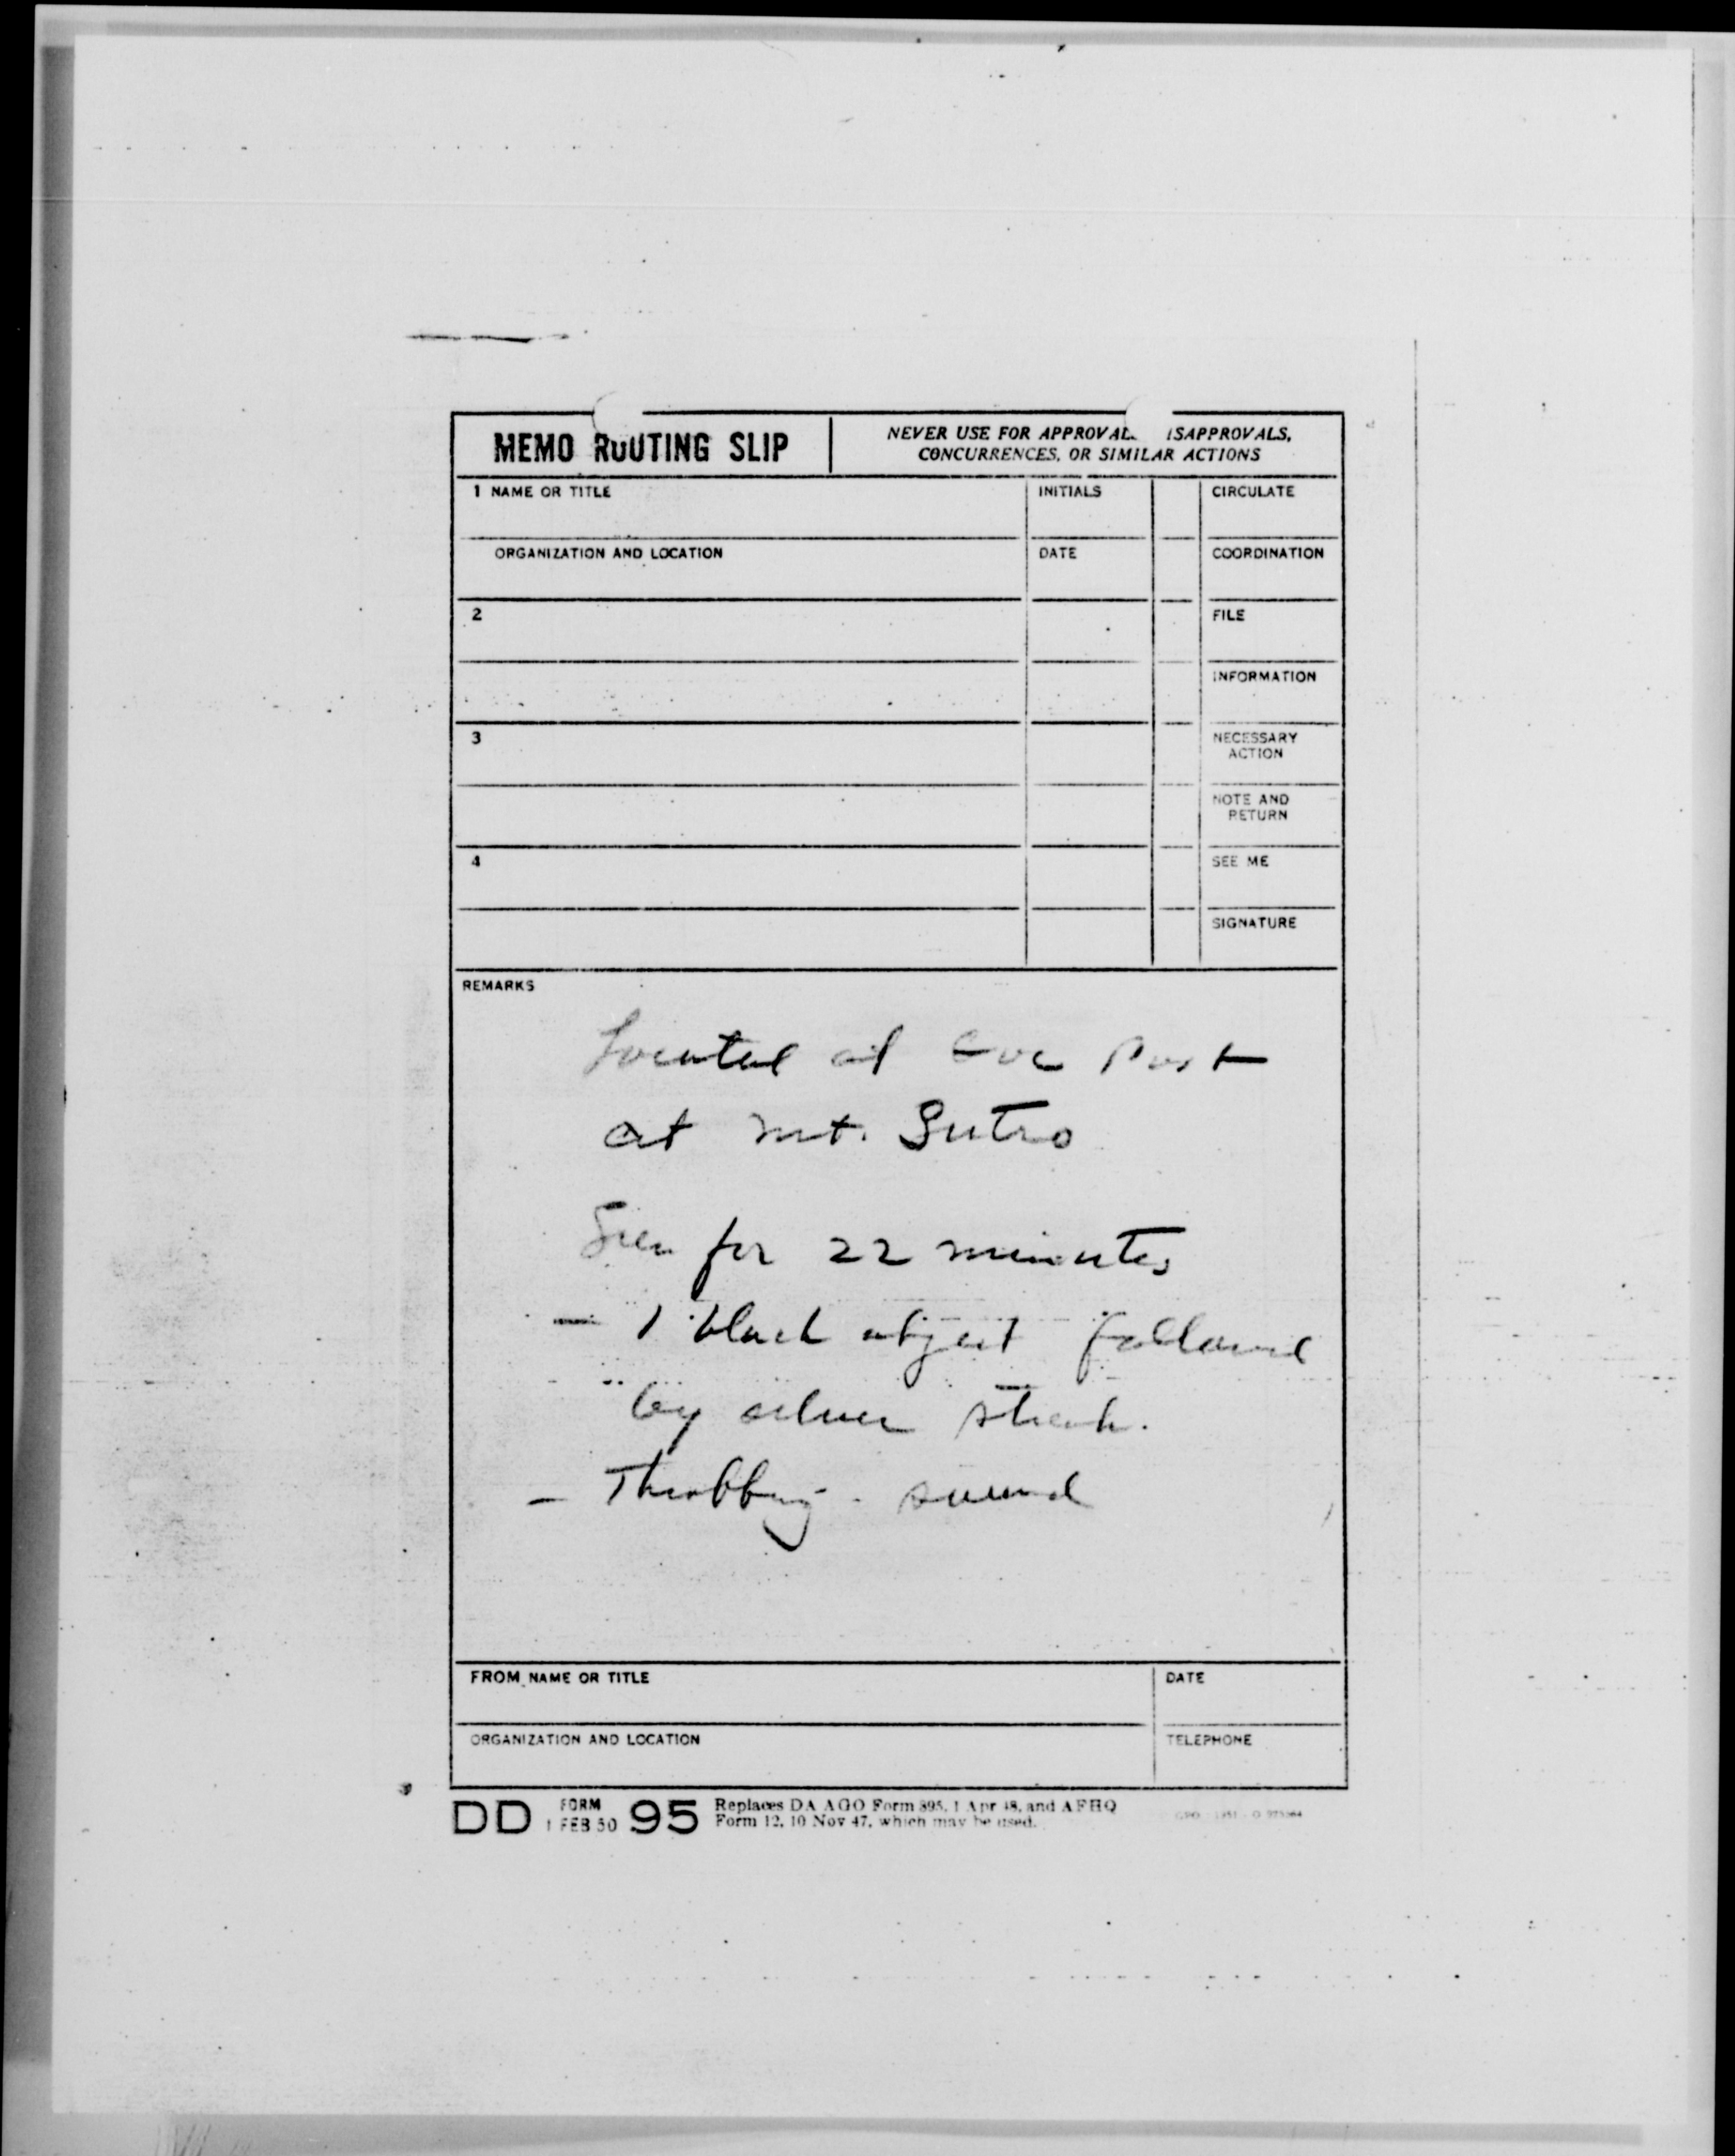 MEMO ROUTING SLIP
NEVER USE FOR APPROVAL ISAPPROVALS,
CONCURRENCES, OR SIMILAR ACTIONS
1 NAME OR TITLE
INITIALS
CIRCULATE
ORGANIZATION AND LOCATION
DATE
COORDINATION
2
FILE
INFORMATION
3
NECESSARY
ACTION
NOTE AND
RETURN
4
SEE ME
SIGNATURE
REMARKS
Located at Post
at mt. Sutro
Seen for 22 minutes
— 1 black object followed
by silver streak.
— Throbbing sound
FROM NAME OR TITLE
DATE
ORGANIZATION AND LOCATION
TELEPHONE
DD FORM 1 FEB 50 95
Replaces DA AGO Form 895, 1 Apr 48, and AFHQ
Form 12, 10 Nov 47, which may be used.